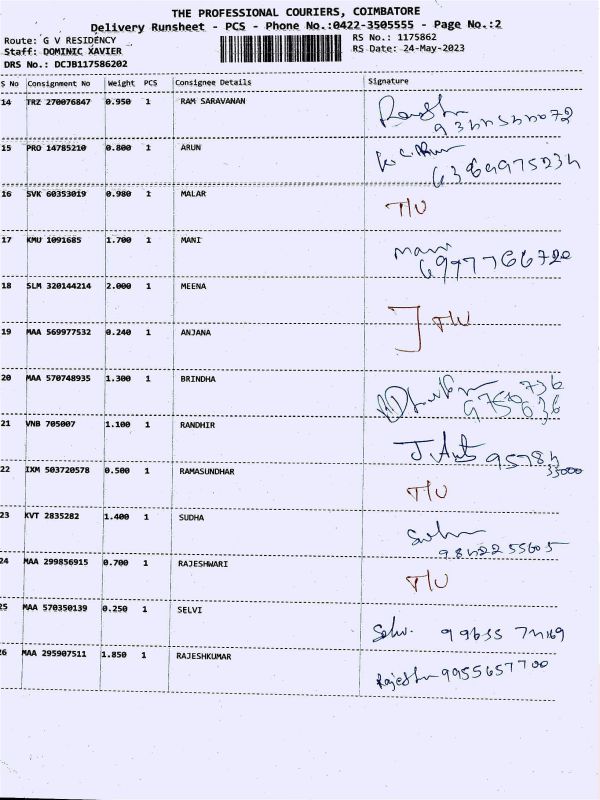 THE PROFESSIONAL COURIERS, COIMBATORE
Delivery Runsheet - PCS - Phone No.:0422-3505555 - Page No.:2
Route: G V RESIDENCY
RS No.: 1175862
Staff: DOMINIC XAVIER
RS Date: 24-May-2023
DRS No.: DCJB117586202
S No Consignment No Weight PCS Consignee Details Signature
14 TRZ 270076847 0.950 1 RAM SARAVANAN
15 PRO 14785210 0.800 1 ARUN
6369975234
16 SVK 60353019 0.980 1 MALAR
T/U
17 KMU 1091685 1.700 1 MANI
Mani
6997766720
18 SLM 320144214 2.000 1 MEENA
T/U
19 MAA 569977532 0.240 1 ANJANA
20 MAA 570748935 1.300 1 BRINDHA
21 VNB 705007 1.100 1 RANDHIR
22 IXM 503720578 0.500 1 RAMASUNDHAR
T/U
23 KVT 2835282 1.400 1 SUDHA
9842255605
24 MAA 299856915 0.700 1 RAJESHWARI
T/U
25 MAA 570350139 0.250 1 SELVI
Selvi.
26 MAA 295907511 1.850 1 RAJESHKUMAR
Rajesh 9955657700